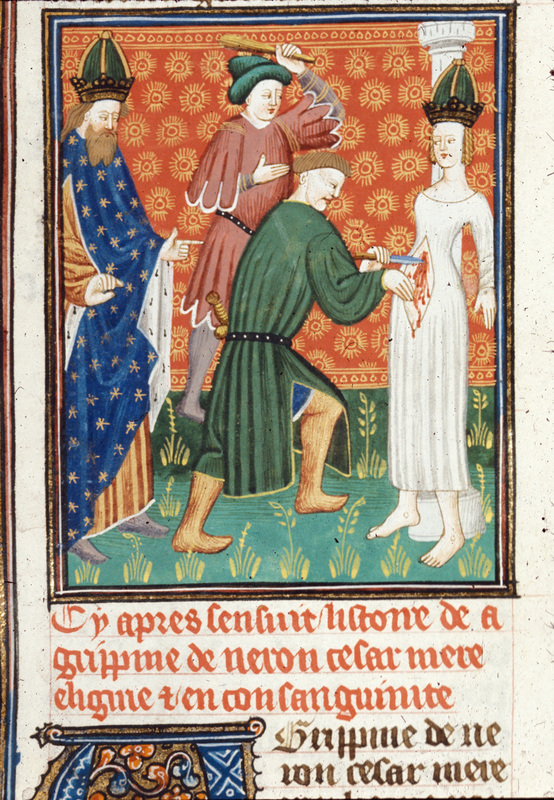 Cy apres sensuit listoire de a
grippine de neron cesar mere
eligne & en consanguinite
Grippine de ne
ron cesar mere